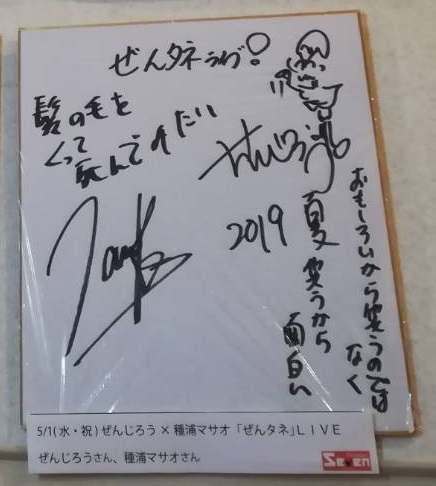 ぜんタネラブ!
髪の毛を
くって
死んでみたい
ぜんじろう
2019
夏
おもしろいから笑うのでは
なく
笑うから
面白い
5/1(水・祝)ぜんじろう×種浦マサオ「ぜんタネ」LIVE
ぜんじろうさん、種浦マサオさん
Seven